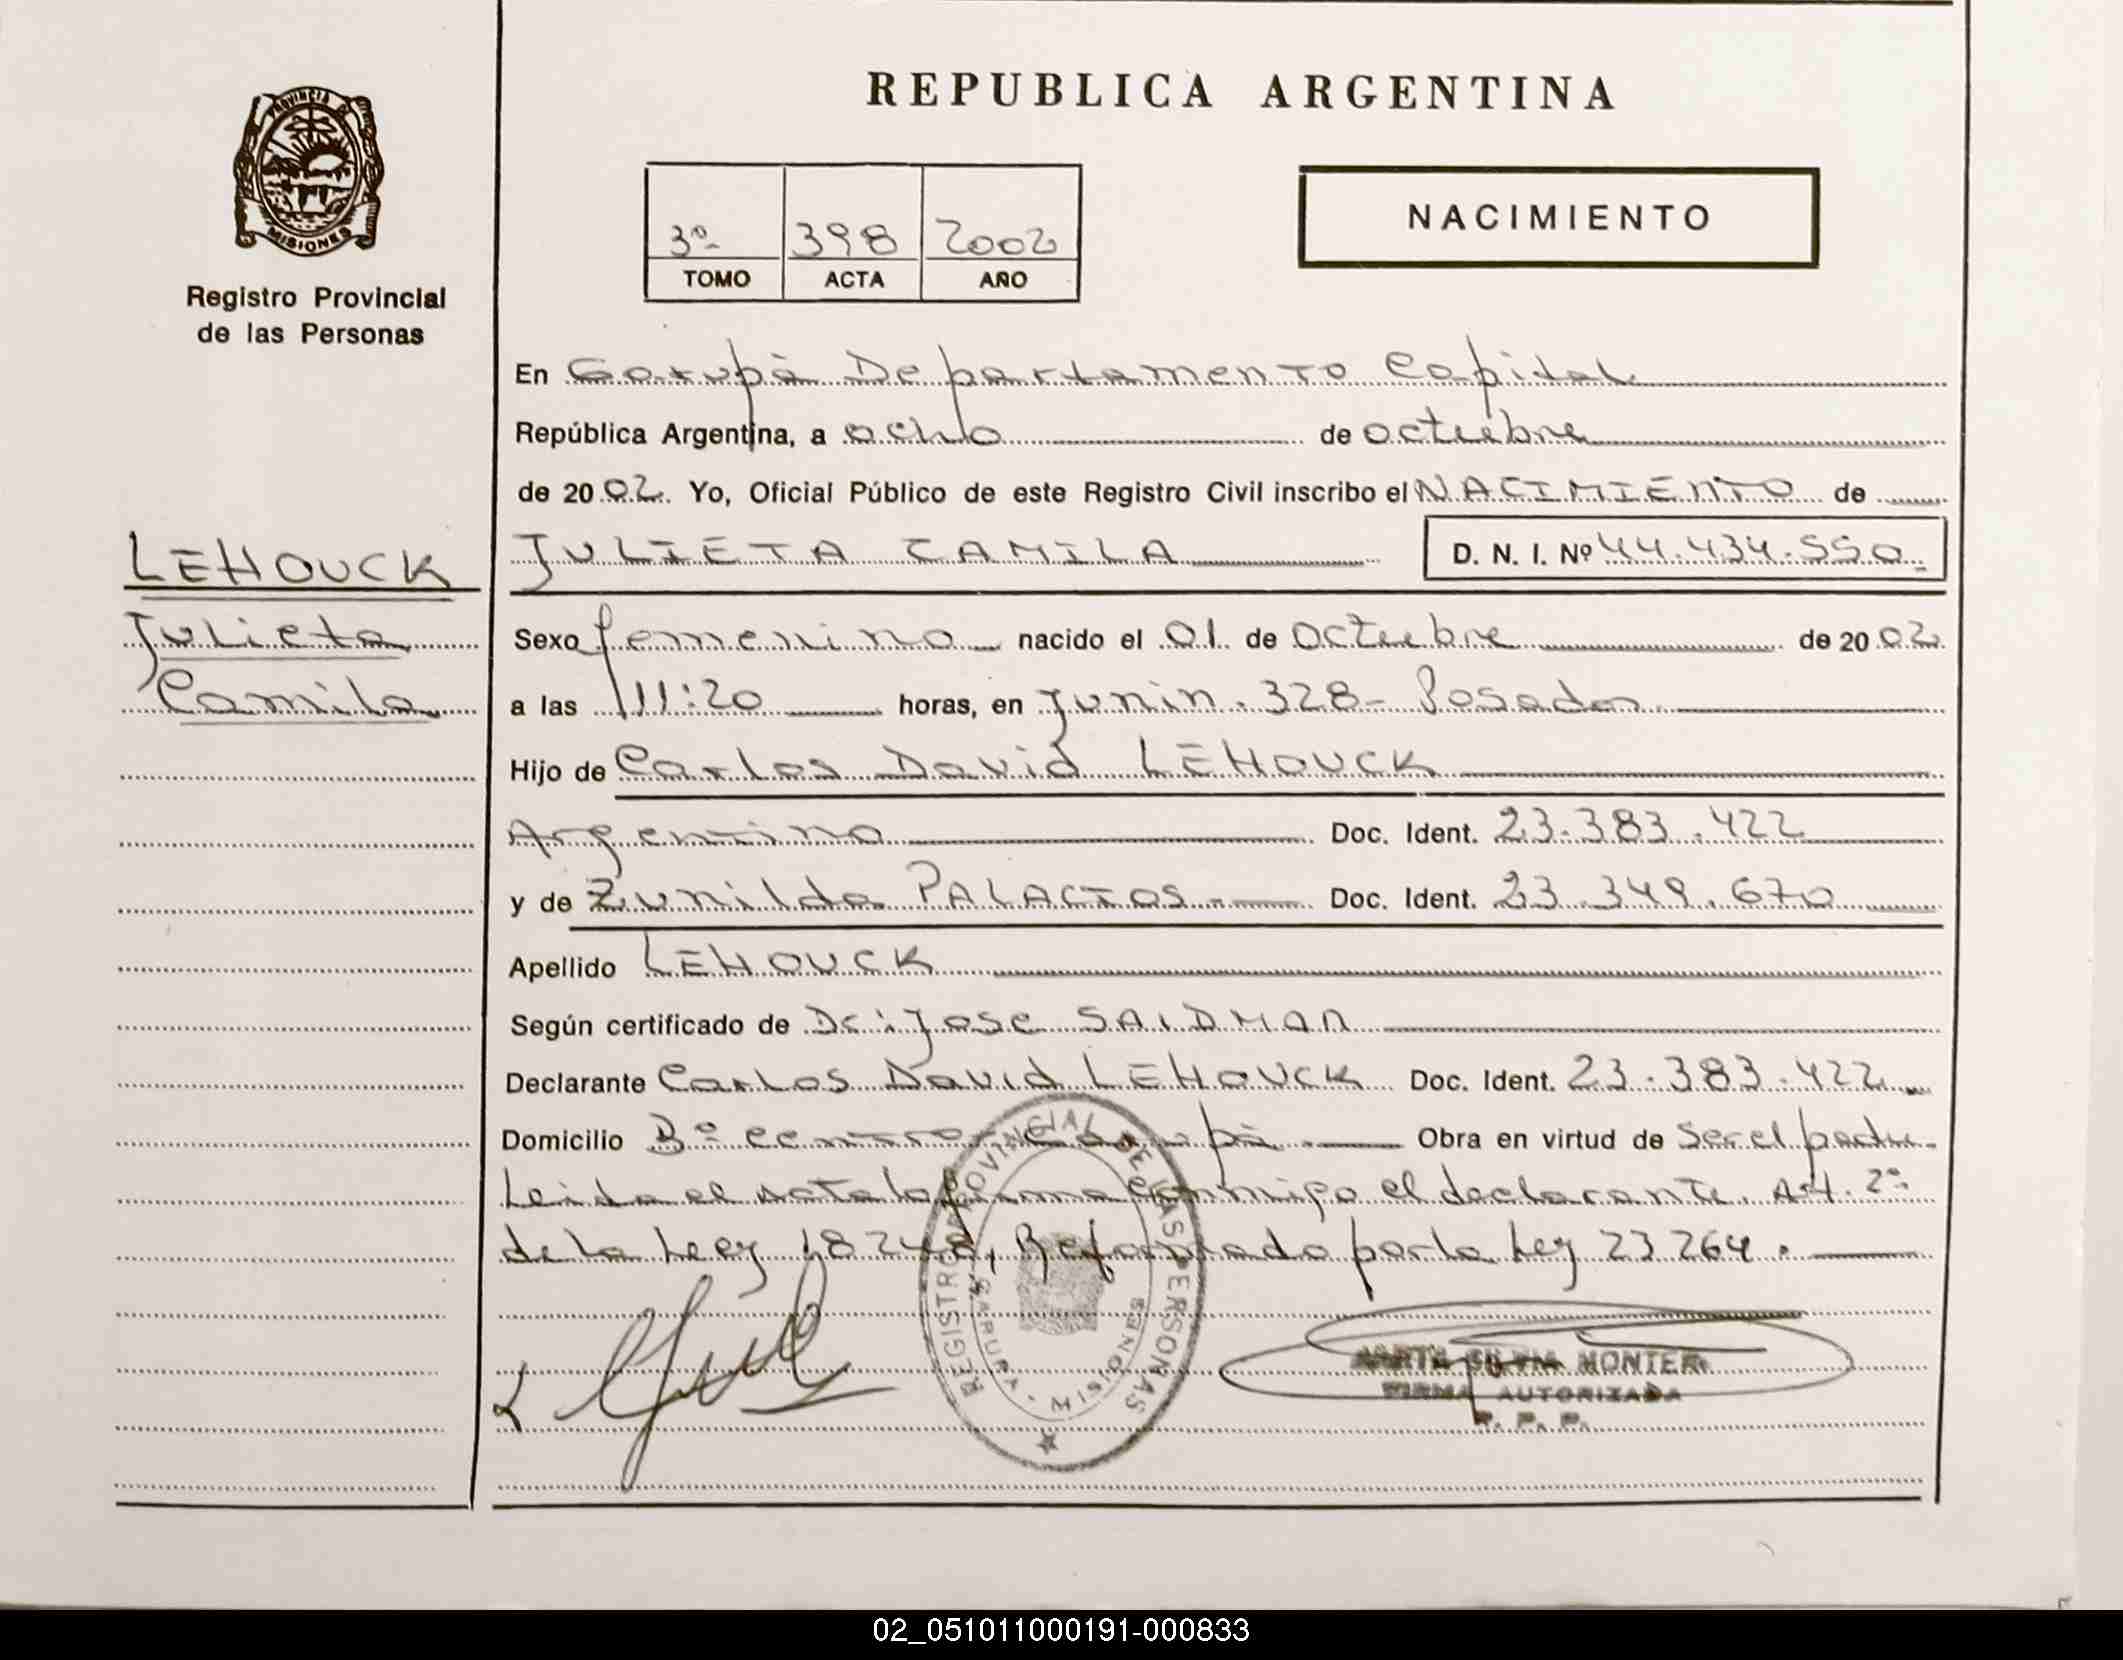 REPUBLICA ARGENTINA
PROVINCIA DE
MISIONES
Registro Provincial
de las Personas
3º 398 2002
TOMO ACTA AÑO
NACIMIENTO
En Garupá Departamento Capital
República Argentina, a ocho de octubre
de 2002. Yo, Oficial Público de este Registro Civil inscribo el NACIMIENTO de
LEHOUCK
Julieta
Camila
JULIETA CAMILA D. N. I. Nº 44.434.550
Sexo femenino nacido el 01 de Octubre de 2002
a las 11:20 horas, en Junin 328 - Posadas
Hijo de Carlos David LEHOUCK
Argentino Doc. Ident. 23.383.422
y de Zunilda PALACIOS Doc. Ident. 23.349.670
Apellido LEHOUCK
Según certificado de Dr: Jose SAIDMAN
Declarante Carlos David LEHOUCK Doc. Ident. 23.383.422
Domicilio Bº centro Garupá Obra en virtud de Ser el padre
Leida el acta la firma conmigo el declarante. Art. 2º
de la Ley 18248, Reformado por la Ley 23264.
REGISTRO PROVINCIAL DE LAS PERSONAS
GARUPA - MISIONES
MONTER
FIRMA AUTORIZADA
R. P. P.
02_051011000191-000833